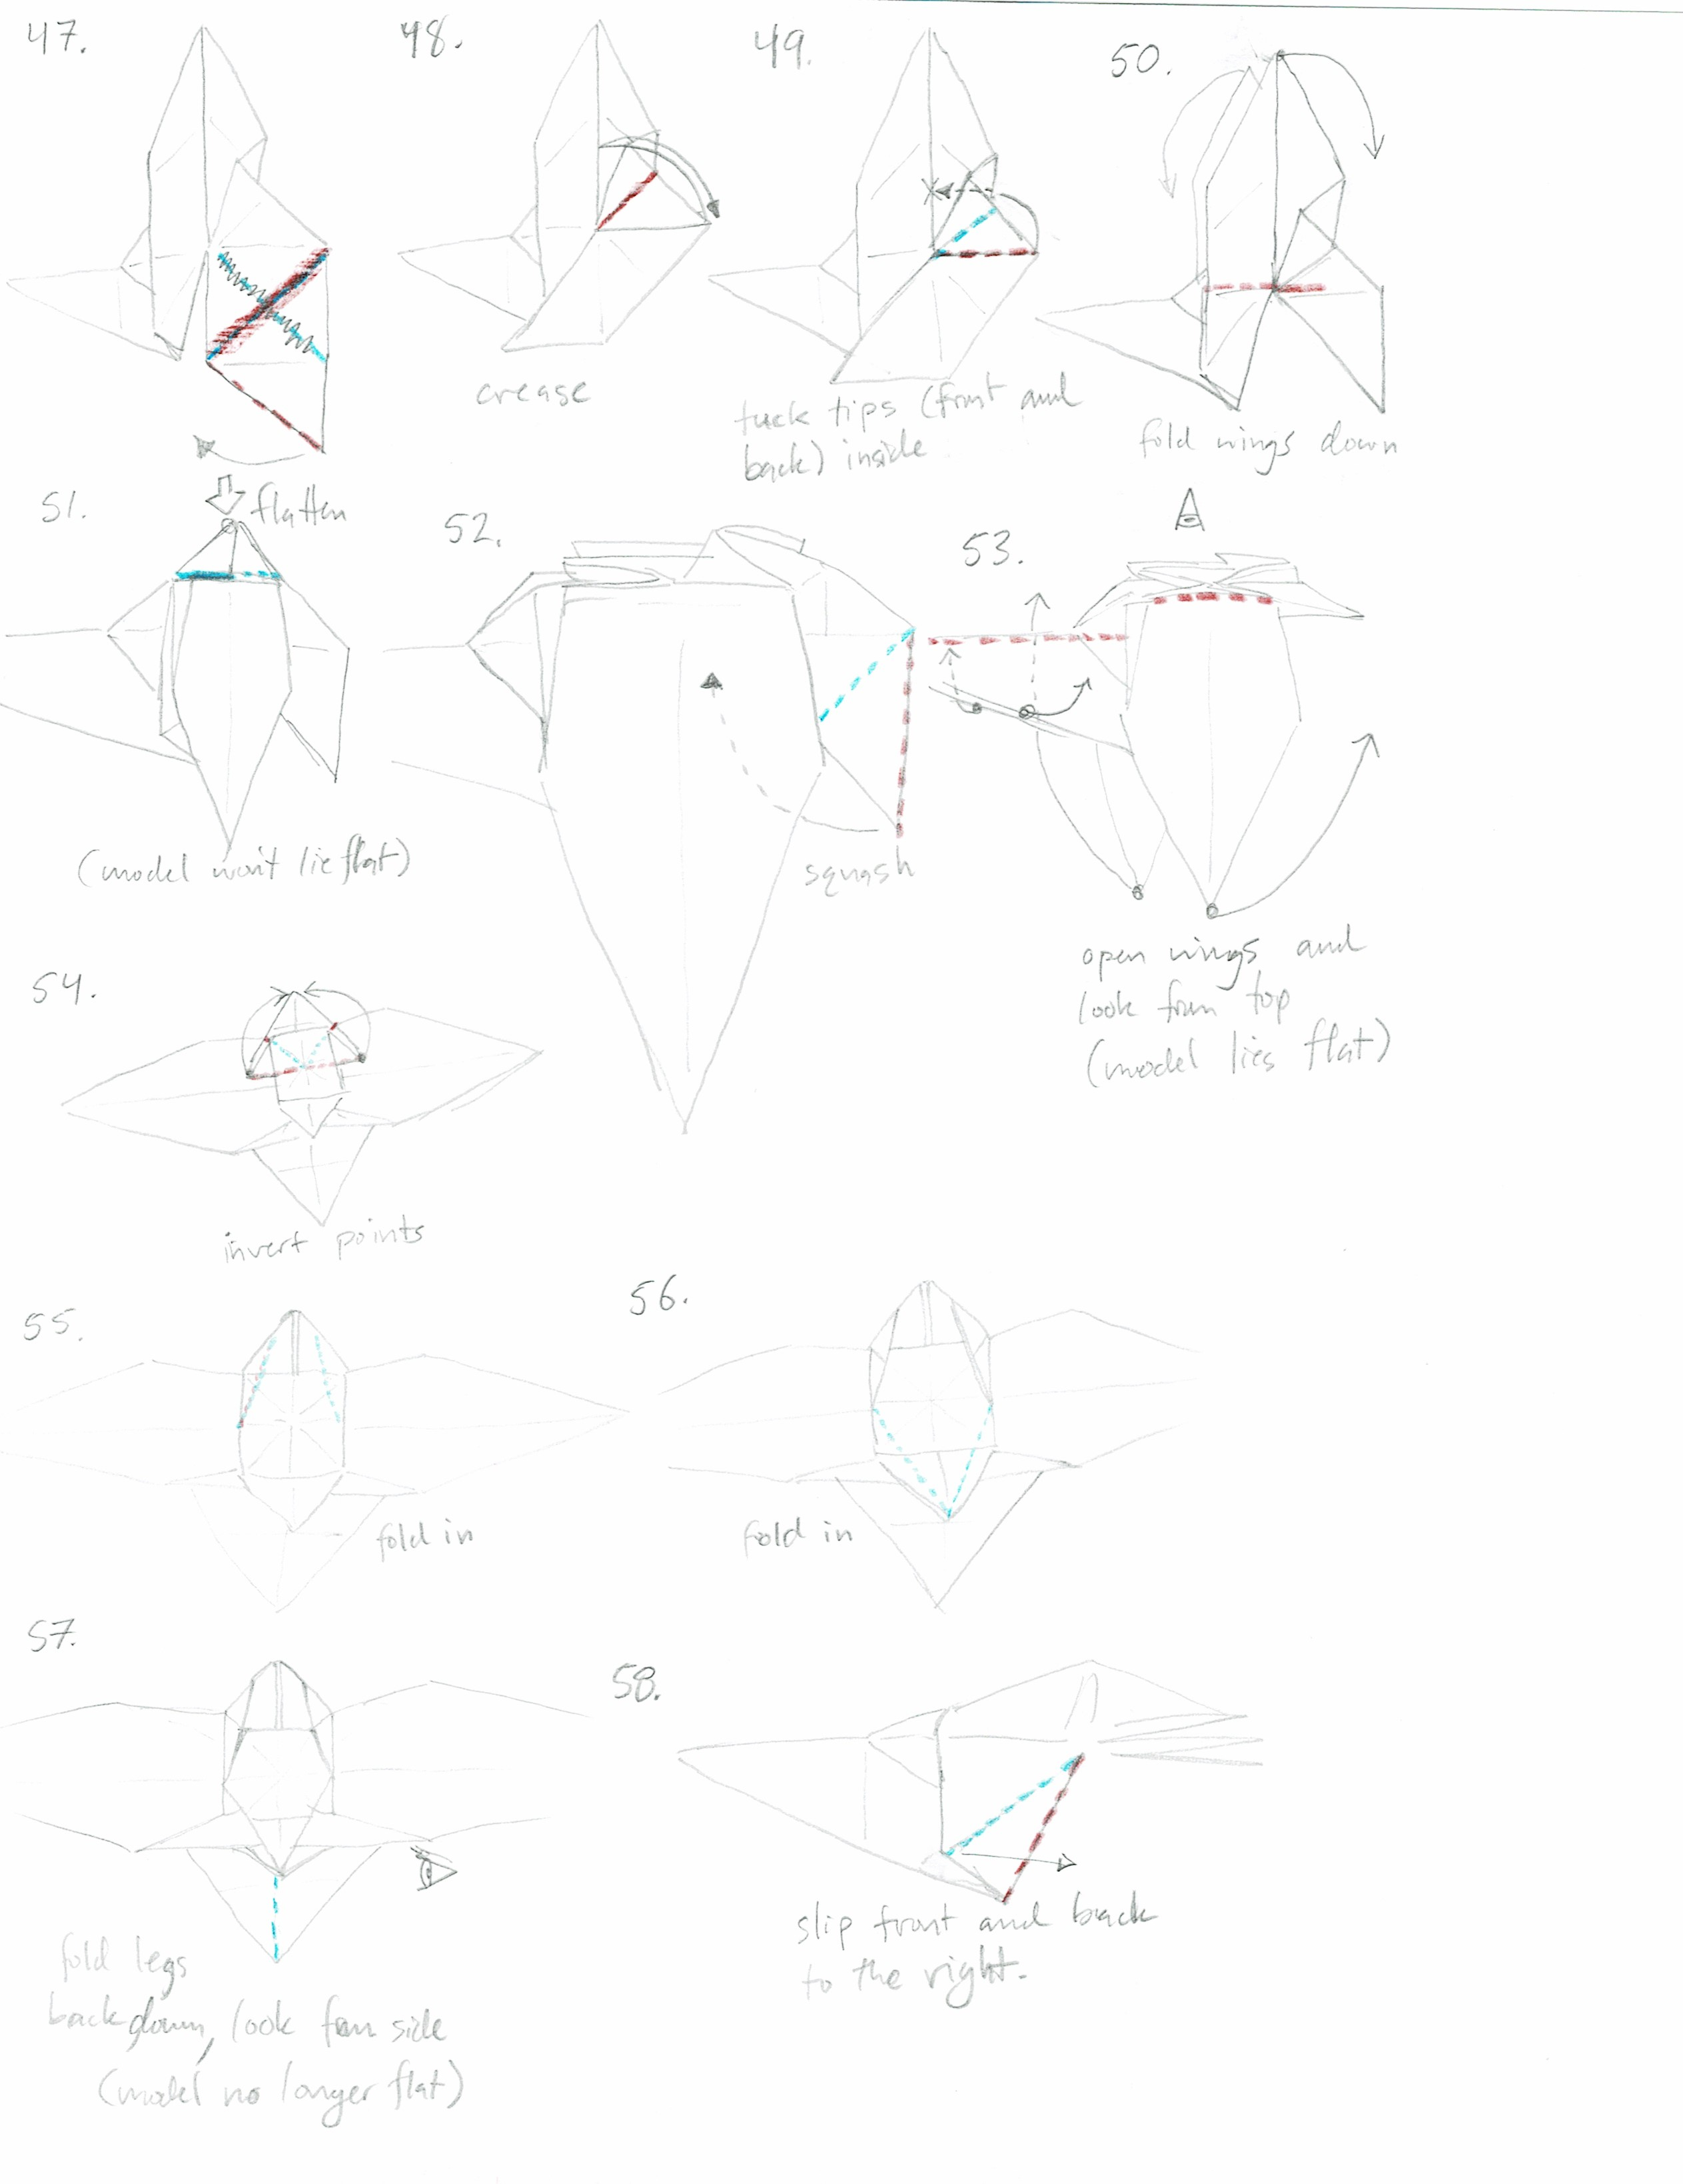 47.
48.
crease
49.
tuck tips (front and
back) inside
50.
fold wings down
51.
flatten
(model won't lie flat)
52.
squash
53.
open wings and
look from top
(model lies flat)
54.
invert points
55.
fold in
56.
fold in
57.
fold legs
back down, look from side
(model no longer flat)
58.
slip front and back
to the right.